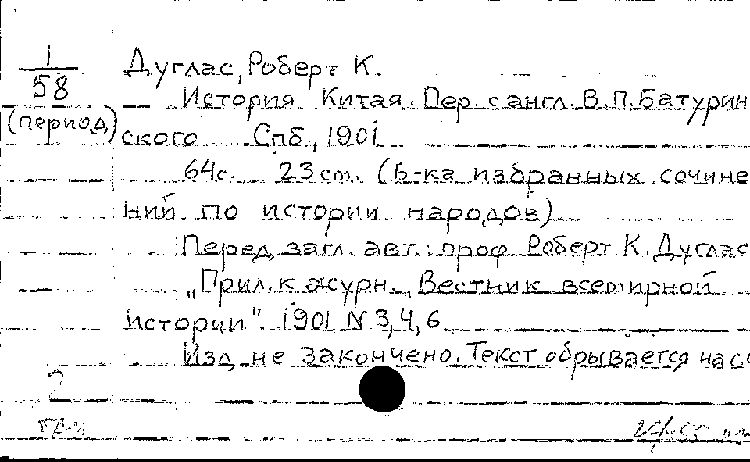 1
58
(период)
Дуглас, Роберт К.
История Китая. Пер. с англ. В.П. Батурин
ского Спб., 1901
64с. 23 cm. (Б-ка избранных сочине
ний по истории народов)
Перед загл. авт.: проф. Роберт К. Дуглас
„Прил. к журн. „Вестник всемирной
истории". 1901 N 3,4,6
Изд. не закончено. Текст обрывается на
2